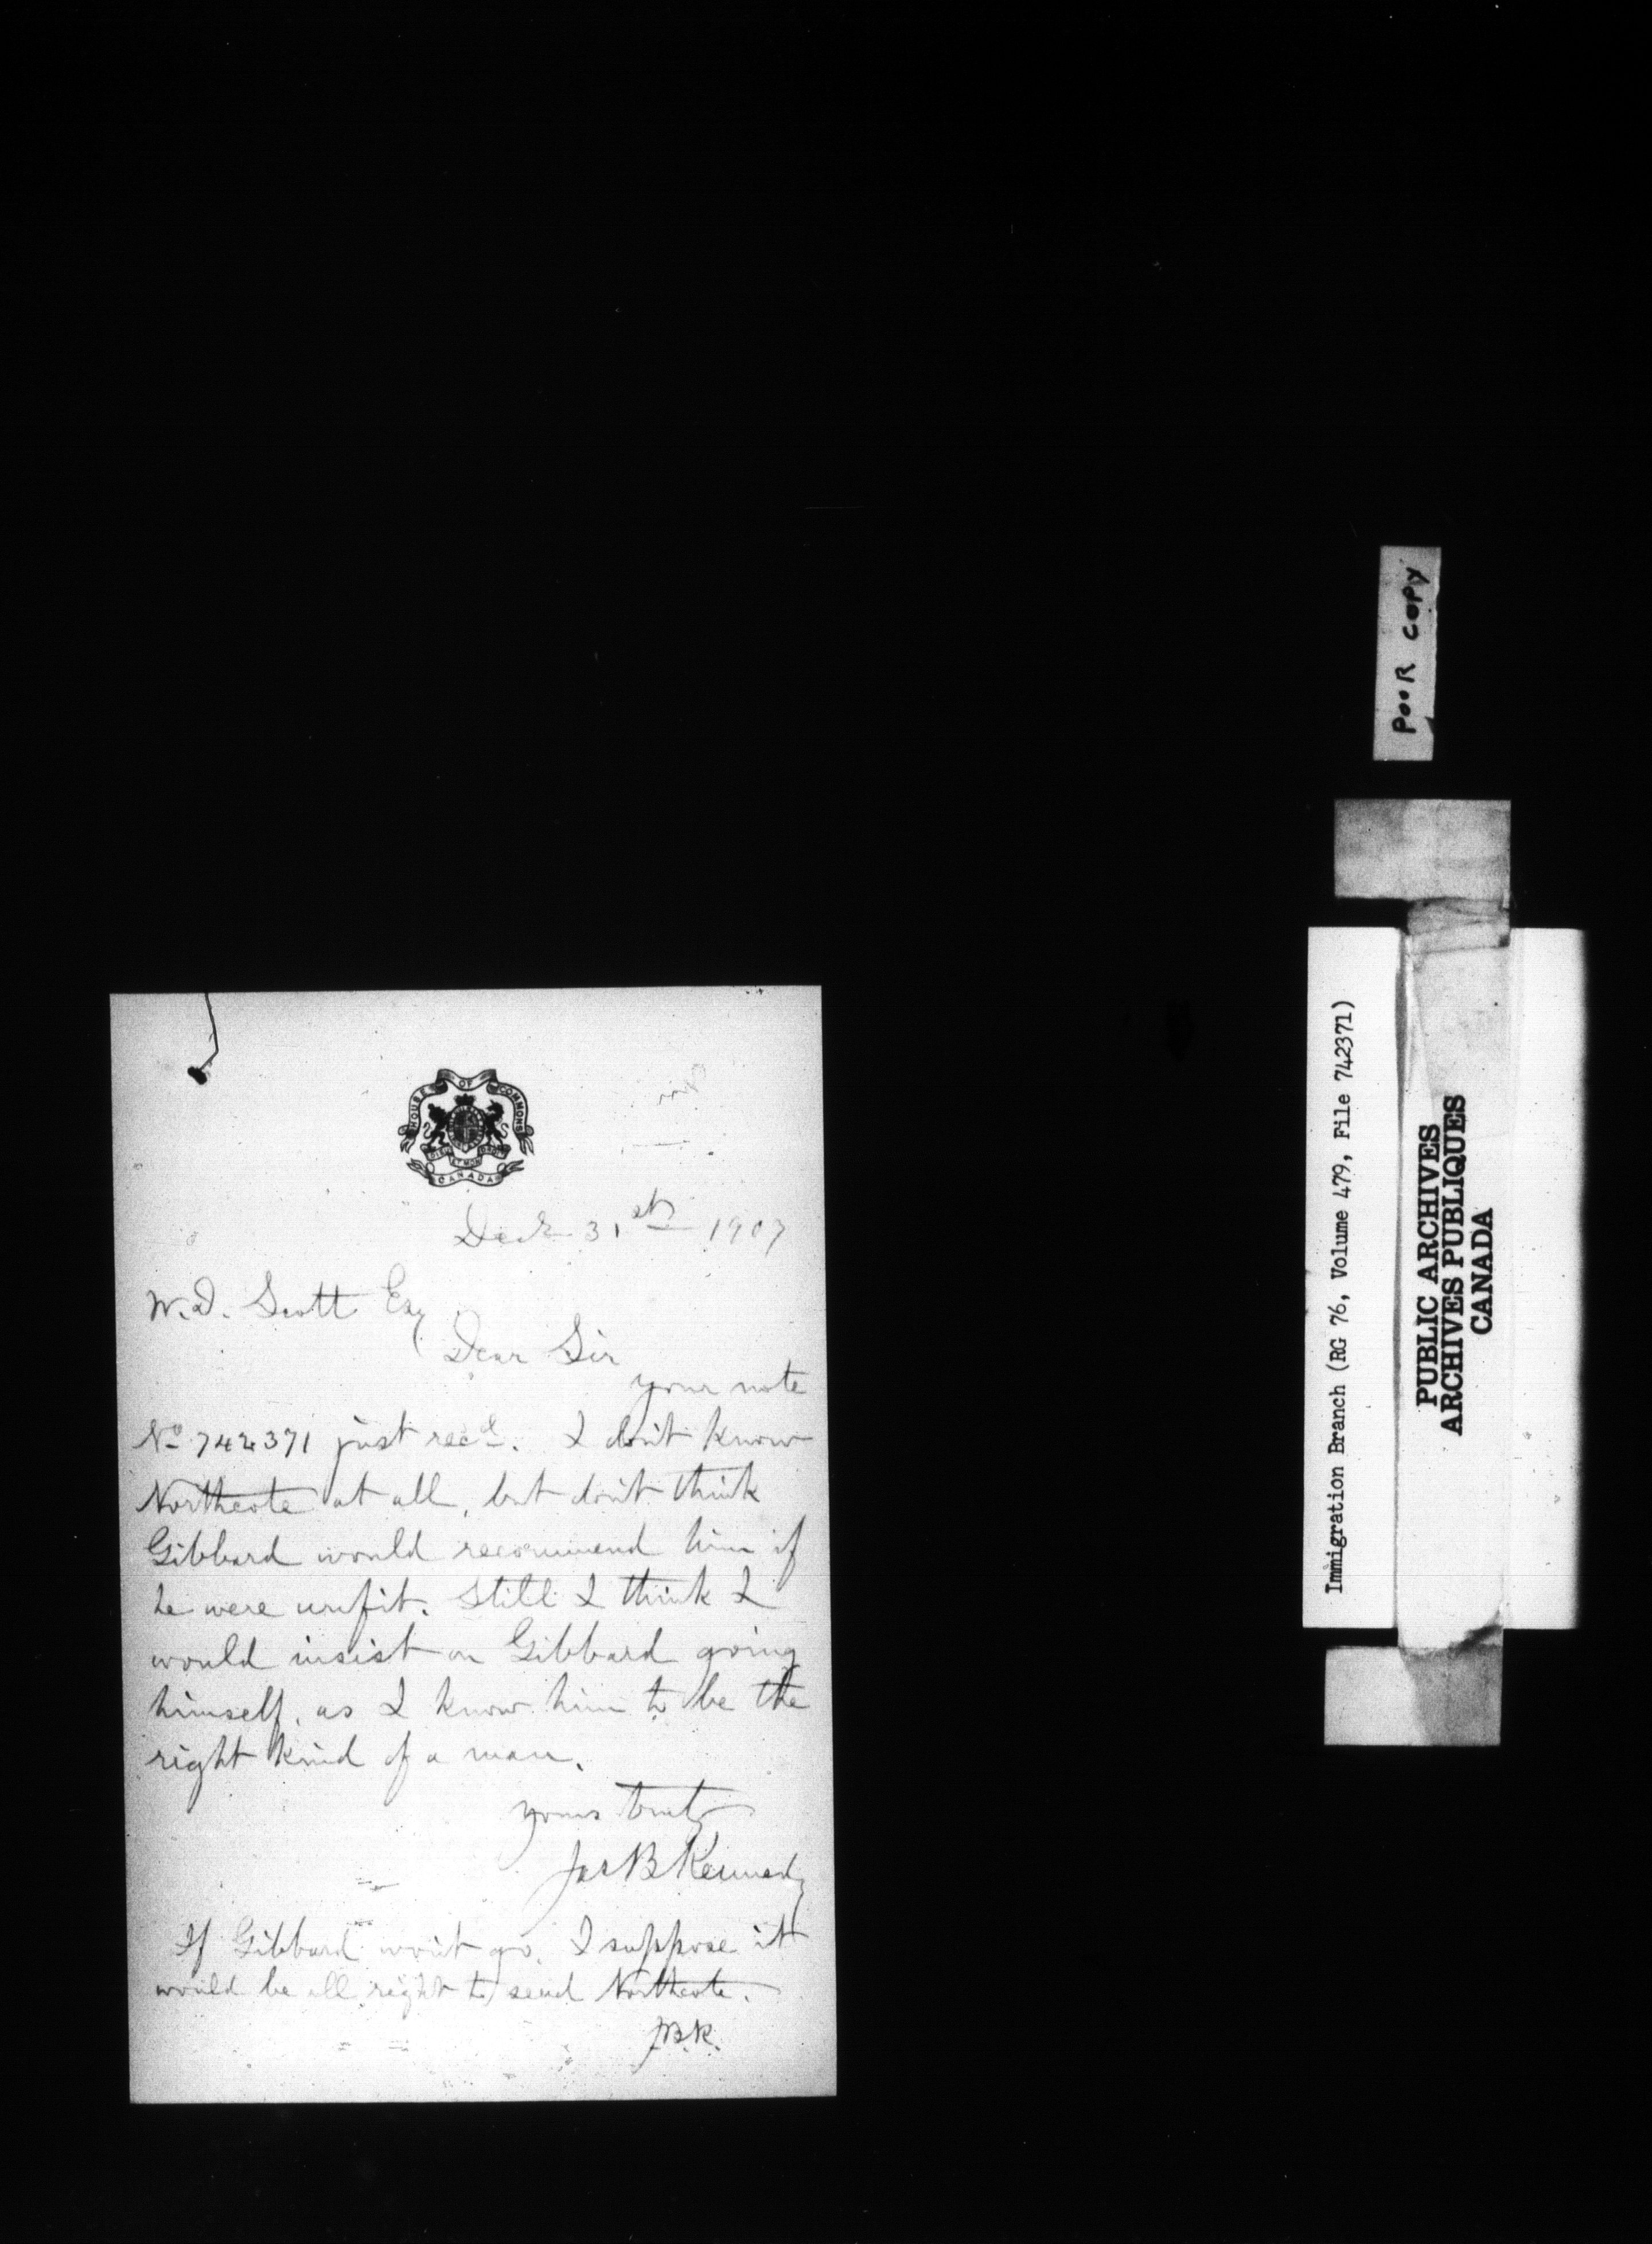 HOUSE OF COMMONS
DIEU ET MON DROIT
CANADA
Decr 31st 1907
W. D. Scott Esq
Dear Sir
your note
No 742371 just recd. I don't know
Northcote at all, but don't think
Gibbard would recommend him if
he were unfit. Still I think I
would insist on Gibbard going
himself, as I know him to be the
right kind of a man.
yours truly
Jas B Kennedy
If Gibbard won't go, I suppose it
would be all right to send Northcote.
J.B.K.
POOR COPY
Immigration Branch (RG 76, Volume 479, File 742371)
PUBLIC ARCHIVES
ARCHIVES PUBLIQUES
CANADA